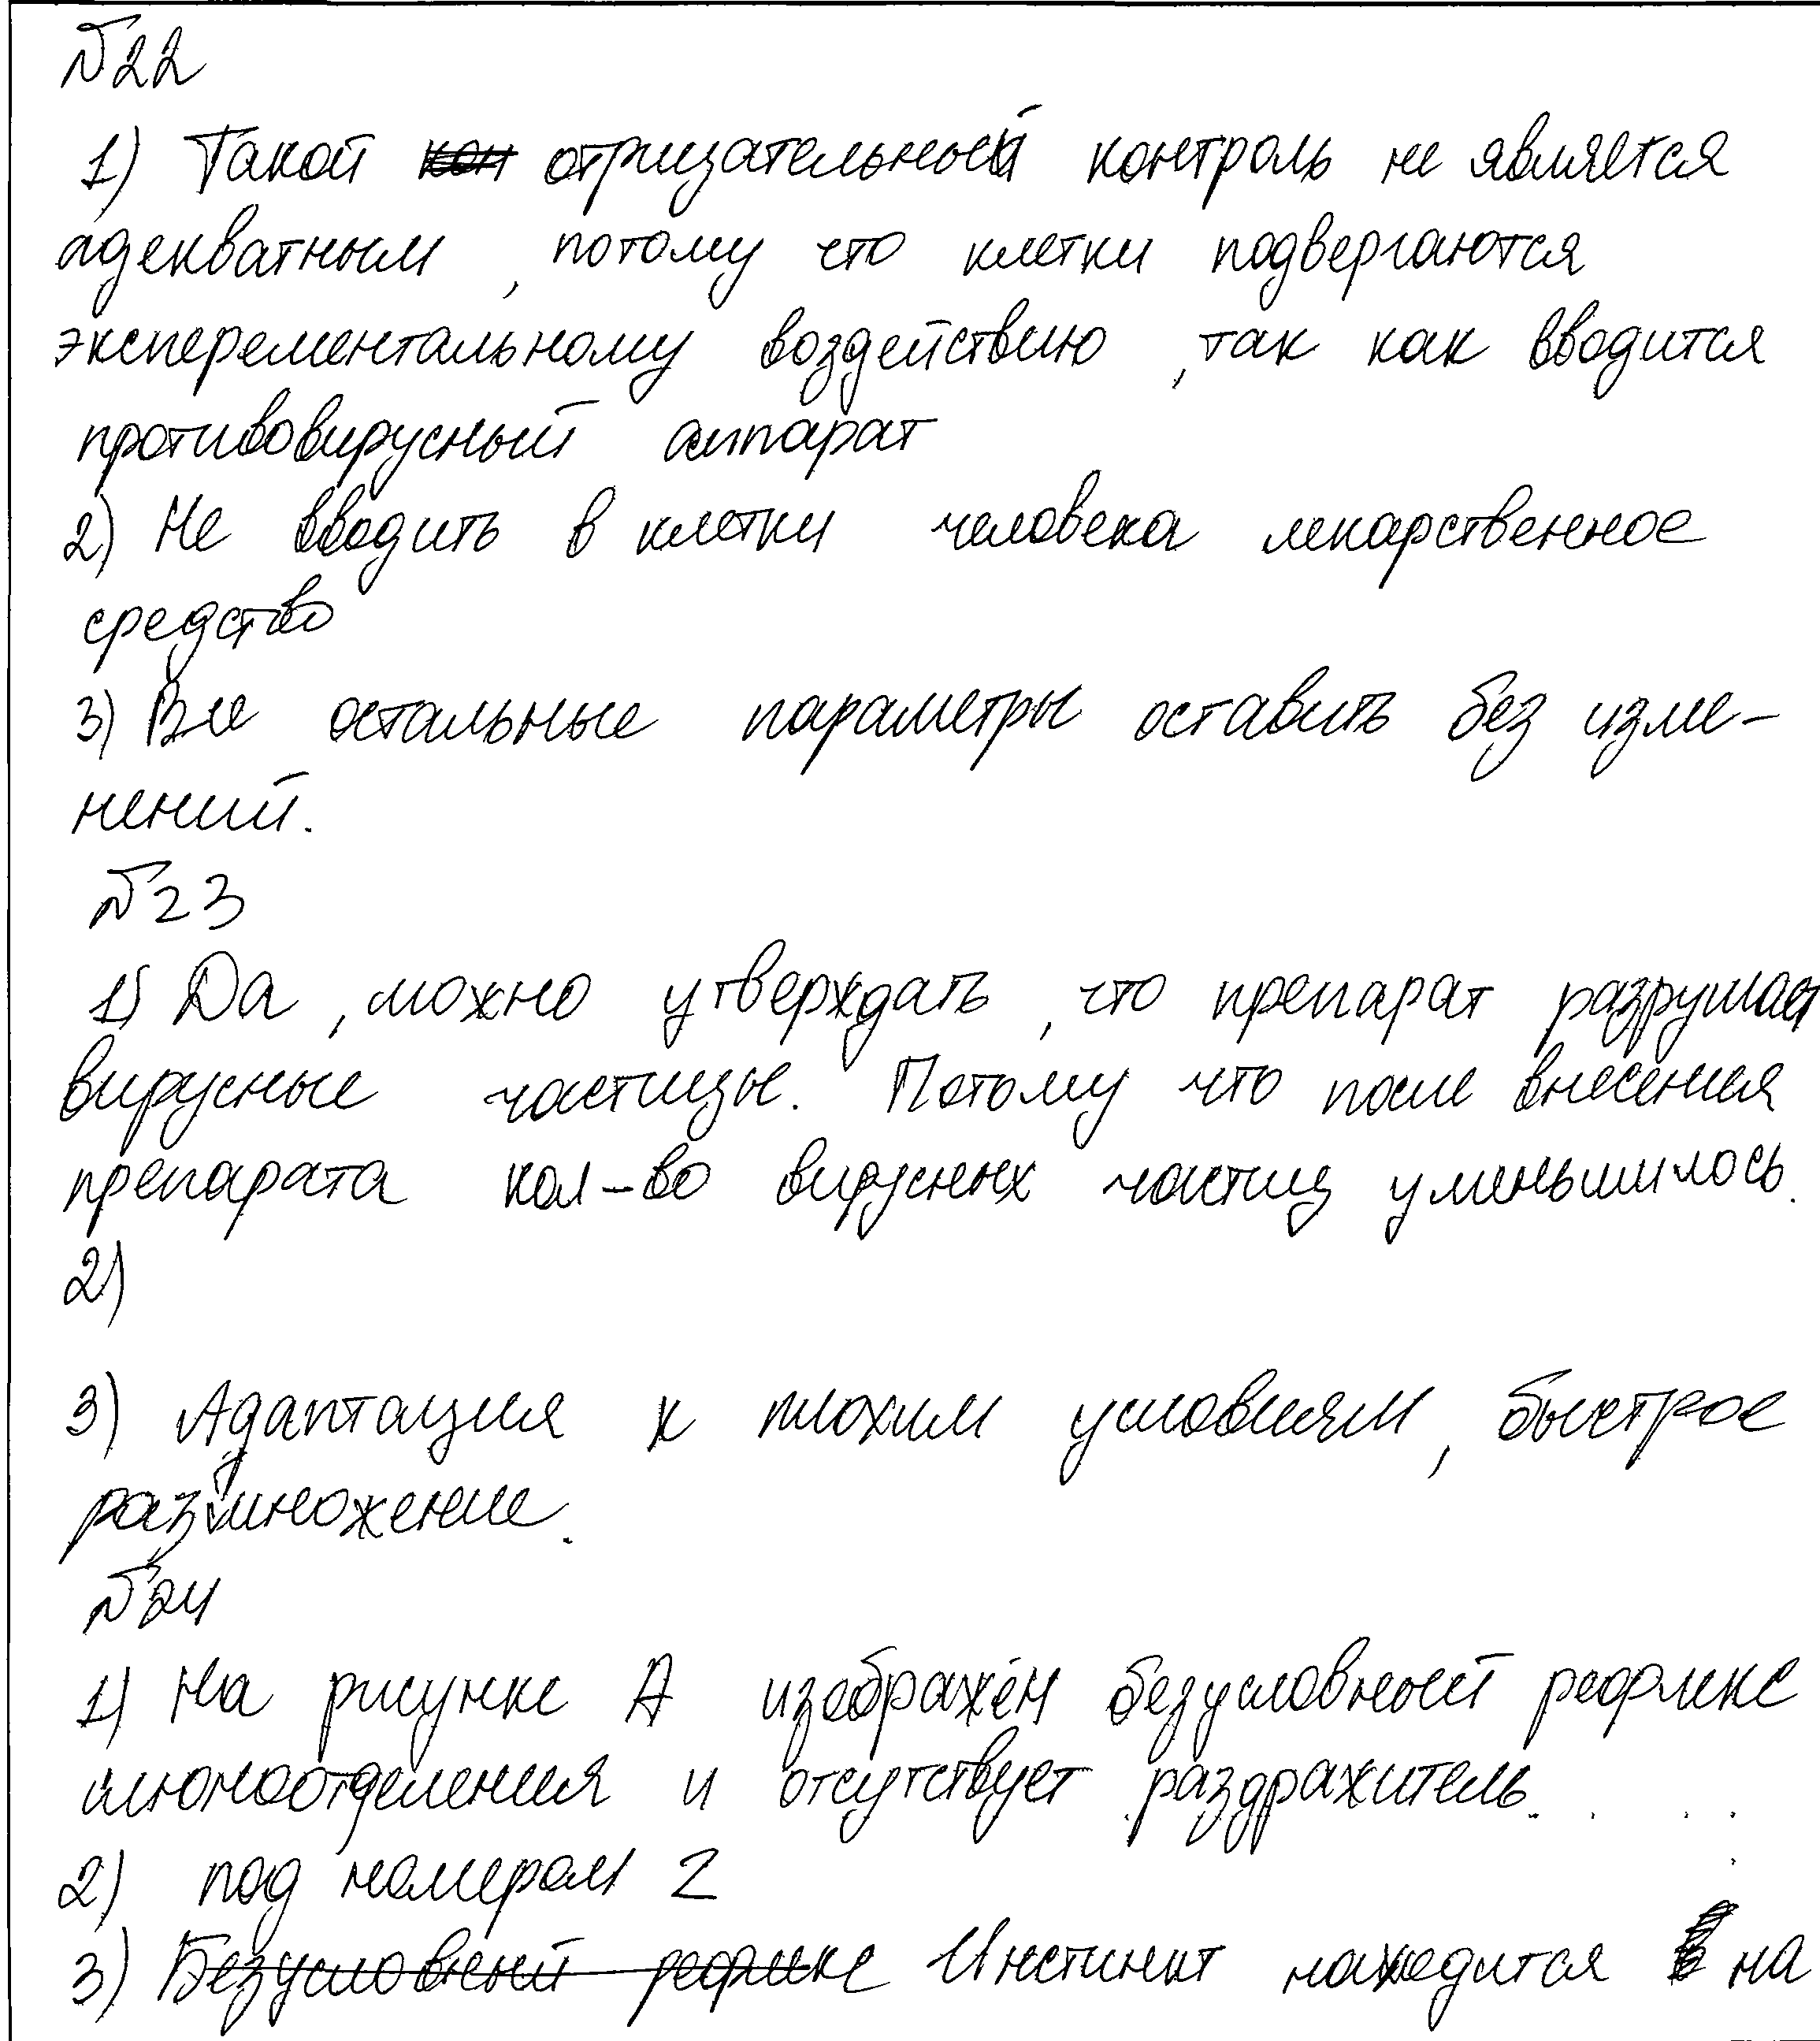 №22
1) Такой кон отрицательный контроль не является
адекватным, потому что клетки подвергаются
эксперементальному воздействию, так как вводится
противовирусный аппарат
2) Не вводить в клетки человека лекарственное
средство
3) Все остальные параметры оставить без изме-
нений.
№23
1) Да, можно утверждать, что препарат разрушает
вирусные частицы. Потому что после внесения
препарата кол-во вирусных частиц уменьшилось.
2)
3) Адаптация к плохим условиям, быстрое
размножение.
№24
1) На рисунке А изображён безусловный рефлекс
слюноотделения и отсутствует раздражитель.
2) под номером 2
3) Безусловный рефлекс Инстинкт находится на